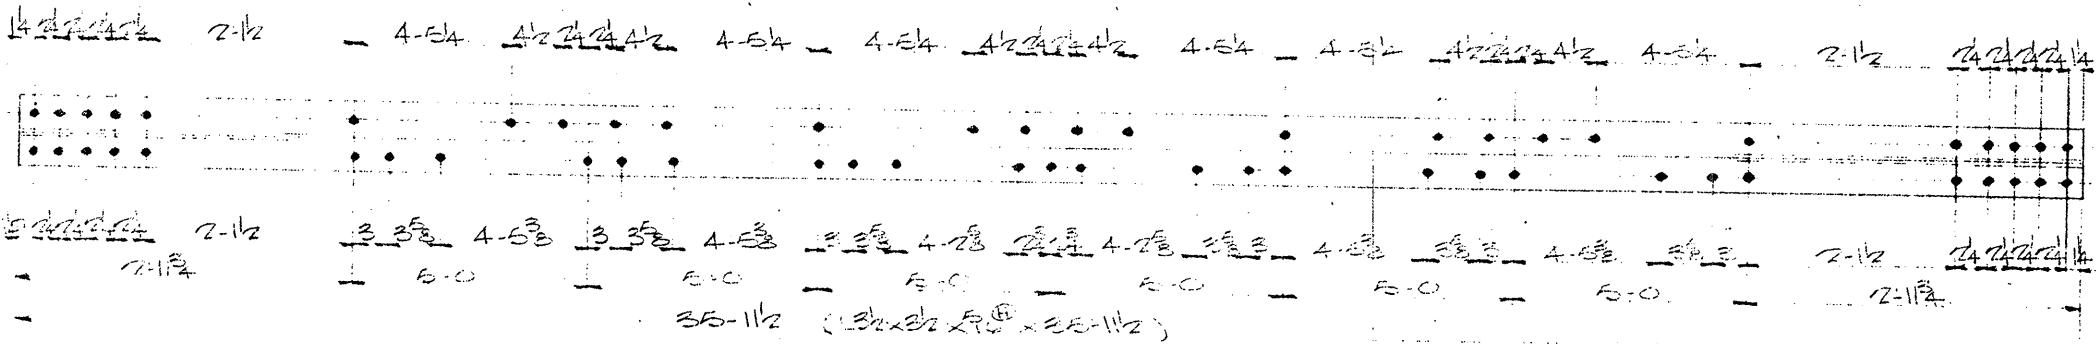 1¼ 2¼ 2¼ 2¼ 2¼ 2-1½ 4-5¼ 4½ 2¼ 2¼ 4½ 4-5¼ 4-5¼ 4½ 2¼ 2¼ 4½ 4-5¼ 4-5¼ 4½ 2¼ 2¼ 4½ 4-5¼ 2-1½ 2¼ 2¼ 2¼ 2¼ 1¼
2¼ 2¼ 2¼ 2¼ 2-1½ 3 3⅝ 4-5⅜ 3 3⅝ 4-5⅜ 3 3⅝ 4-2⅝ 4-2⅝ 3⅝ 3 4-5⅜ 3⅝ 3 4-5⅜ 3⅝ 3 2-1½ 2¼ 2¼ 2¼ 2¼ 1¼
2-11¾ 5-0 5-0 5-0 5-0 5-0 5-0 2-11¾
35-11½ (L3½x3½x5/16 x 35-11½)